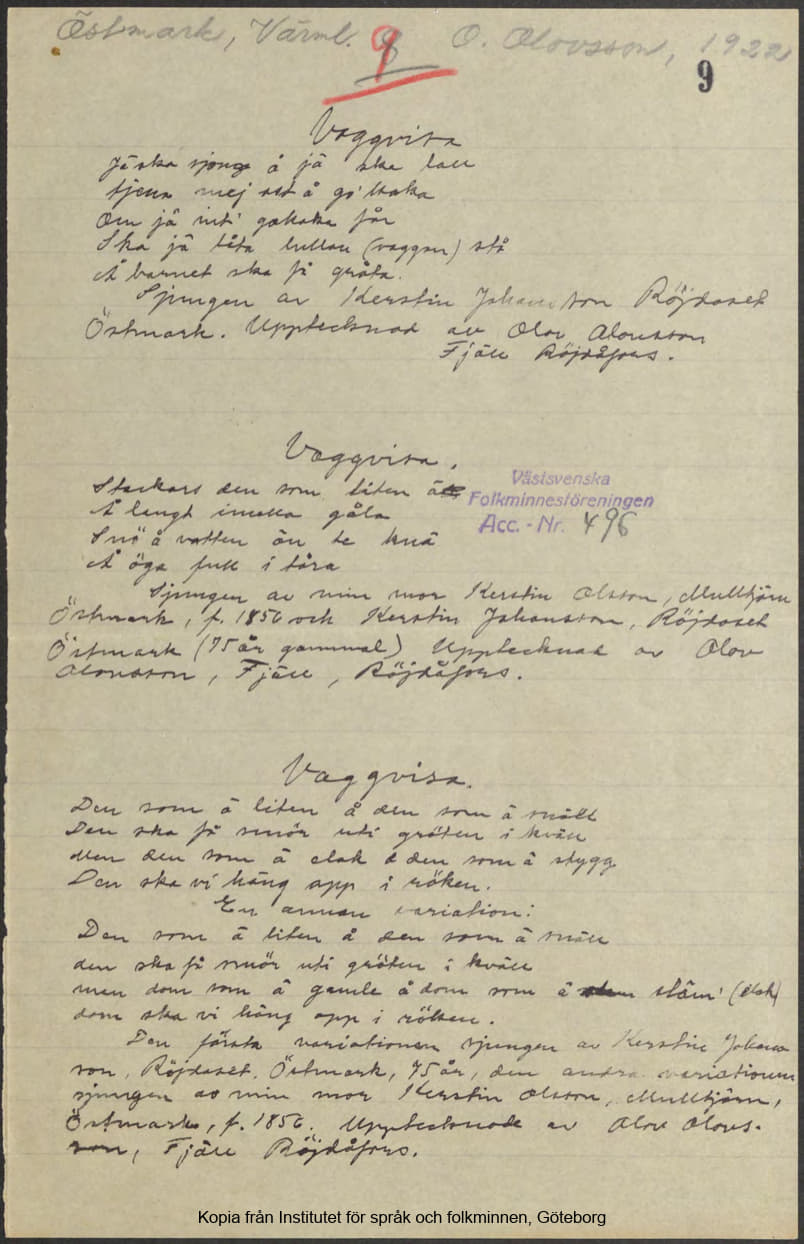 Östmark, Värml. 9 O. Olovsson, 1922
9
Vaggvisa
Jä ska sjonge å jä ska
tjena mej å
Om jä int' får
Ska jä låta lullan (vaggan) stå
Å barnet ska få gråta.
Sjungen av Kerstin Johansson Röjdoset
Östmark. Upptecknad av Olov Olovsson
Fjäll Röjdåfors.
Vaggvisa.
Stackars den som liten ä
Å lengt imella gåla
Snö å vatten än te knä
Å öga full i tåra
Sjungen av min mor Kerstin Olsson, Mulltjärn
Östmark, f. 1856 och Kerstin Johansson, Röjdoset
Östmark (75 år gammal) Upptecknad av Olov
Olovsson, Fjäll, Röjdåfors.
Västsvenska
Folkminnesföreningen
Acc. - Nr. 496
Vaggvisa.
Den som ä liten å den som ä snäll
Den ska få smör uti gröten i kväll
Men den som ä elak å den som ä stygg
Den ska vi häng opp i röken.
En annan variation:
Den som ä liten å den som ä snäll
den ska få smör uti gröten i kväll
men dom som ä gamle å dom som ä släm' (elak)
dom ska vi häng opp i röken.
Den första variationen sjungen av Kerstin Johans
son, Röjdoset, Östmark, 75 år, den andra variationen
sjungen av min mor Kerstin Olsson, Mulltjärn,
Östmark, f. 1856. Upptecknade av Olov Olovs-
son, Fjäll Röjdåfors.
Kopia från Institutet för språk och folkminnen, Göteborg